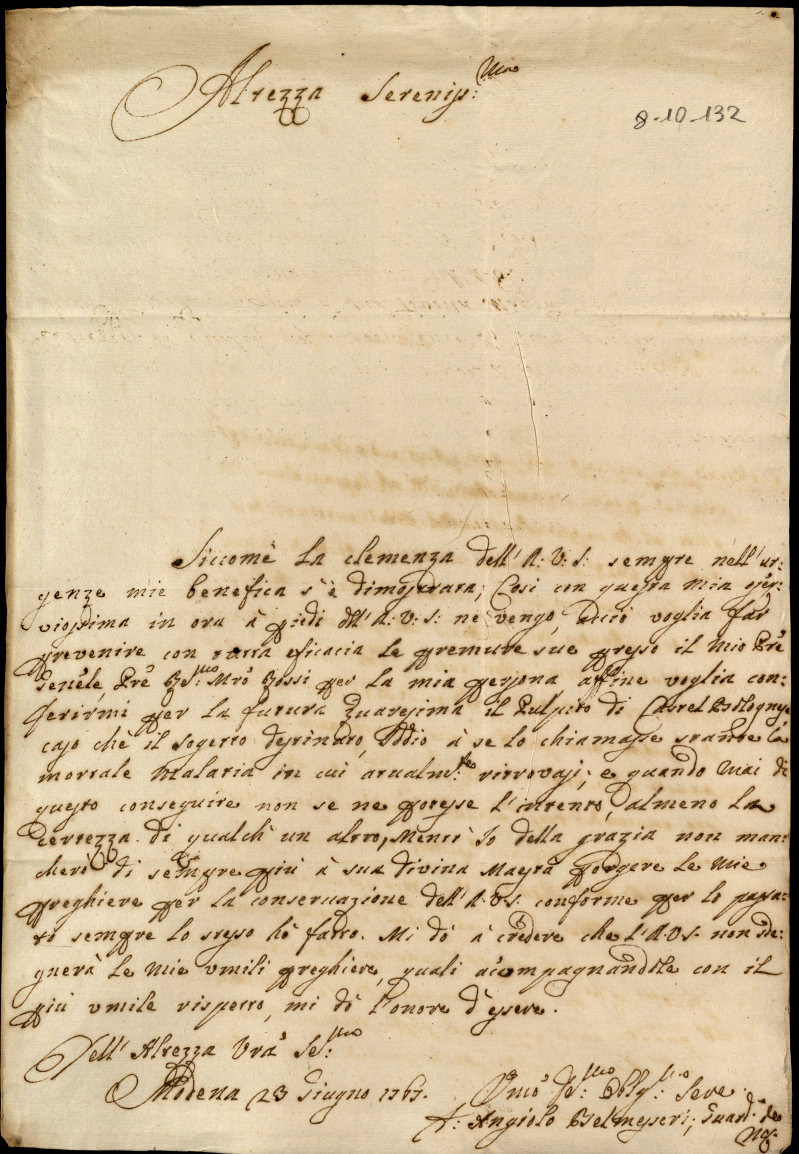 Altezza Sereniss:ma
8-10-132
Siccome la clemenza dell'A: V: S: sempre nell'ur:
genze mie benefica s'è dimostrata; Così con questa mia osser:
viosissima in ora à piedi dell'A: V: S: ne vengo, acciò voglia far
prevenire con tutta eficacia le premure sue presso il mio Prē
Genēle, Prē Re:mo Mrō Rossi per la mia persona, affine voglia con:
ferirmi per la futura Quaresima il Pulpito di Castel Bolognese
caso che il sogetto destinato, Iddio à se lo chiamasse stante la
mortale malatia in cui atualm:te ritrovasi; e quando mai di
questo conseguire non se ne potesse l'intento, almeno la
Certezza di qualch' un altro, mentr' Io della grazia non man:
cherò di sempre più à sua divina Maestà porgere le mie
preghiere per la conservazione dell'A.V.S. conforme per lo passa:
to sempre lo stesso hò fatto. Mi dò à credere che l'A.V.S. non sde:
gnerà le mie umili preghiere, quali acompagnandole con il
più umile rispetto, mi dò l'onore d'essere.
Dell'Altezza Vrā Se:ma
Modena 23 Giugno 1767. Umō De:mo Obbg:mo Serv.
F: Angiolo Belmesseri, Guard: